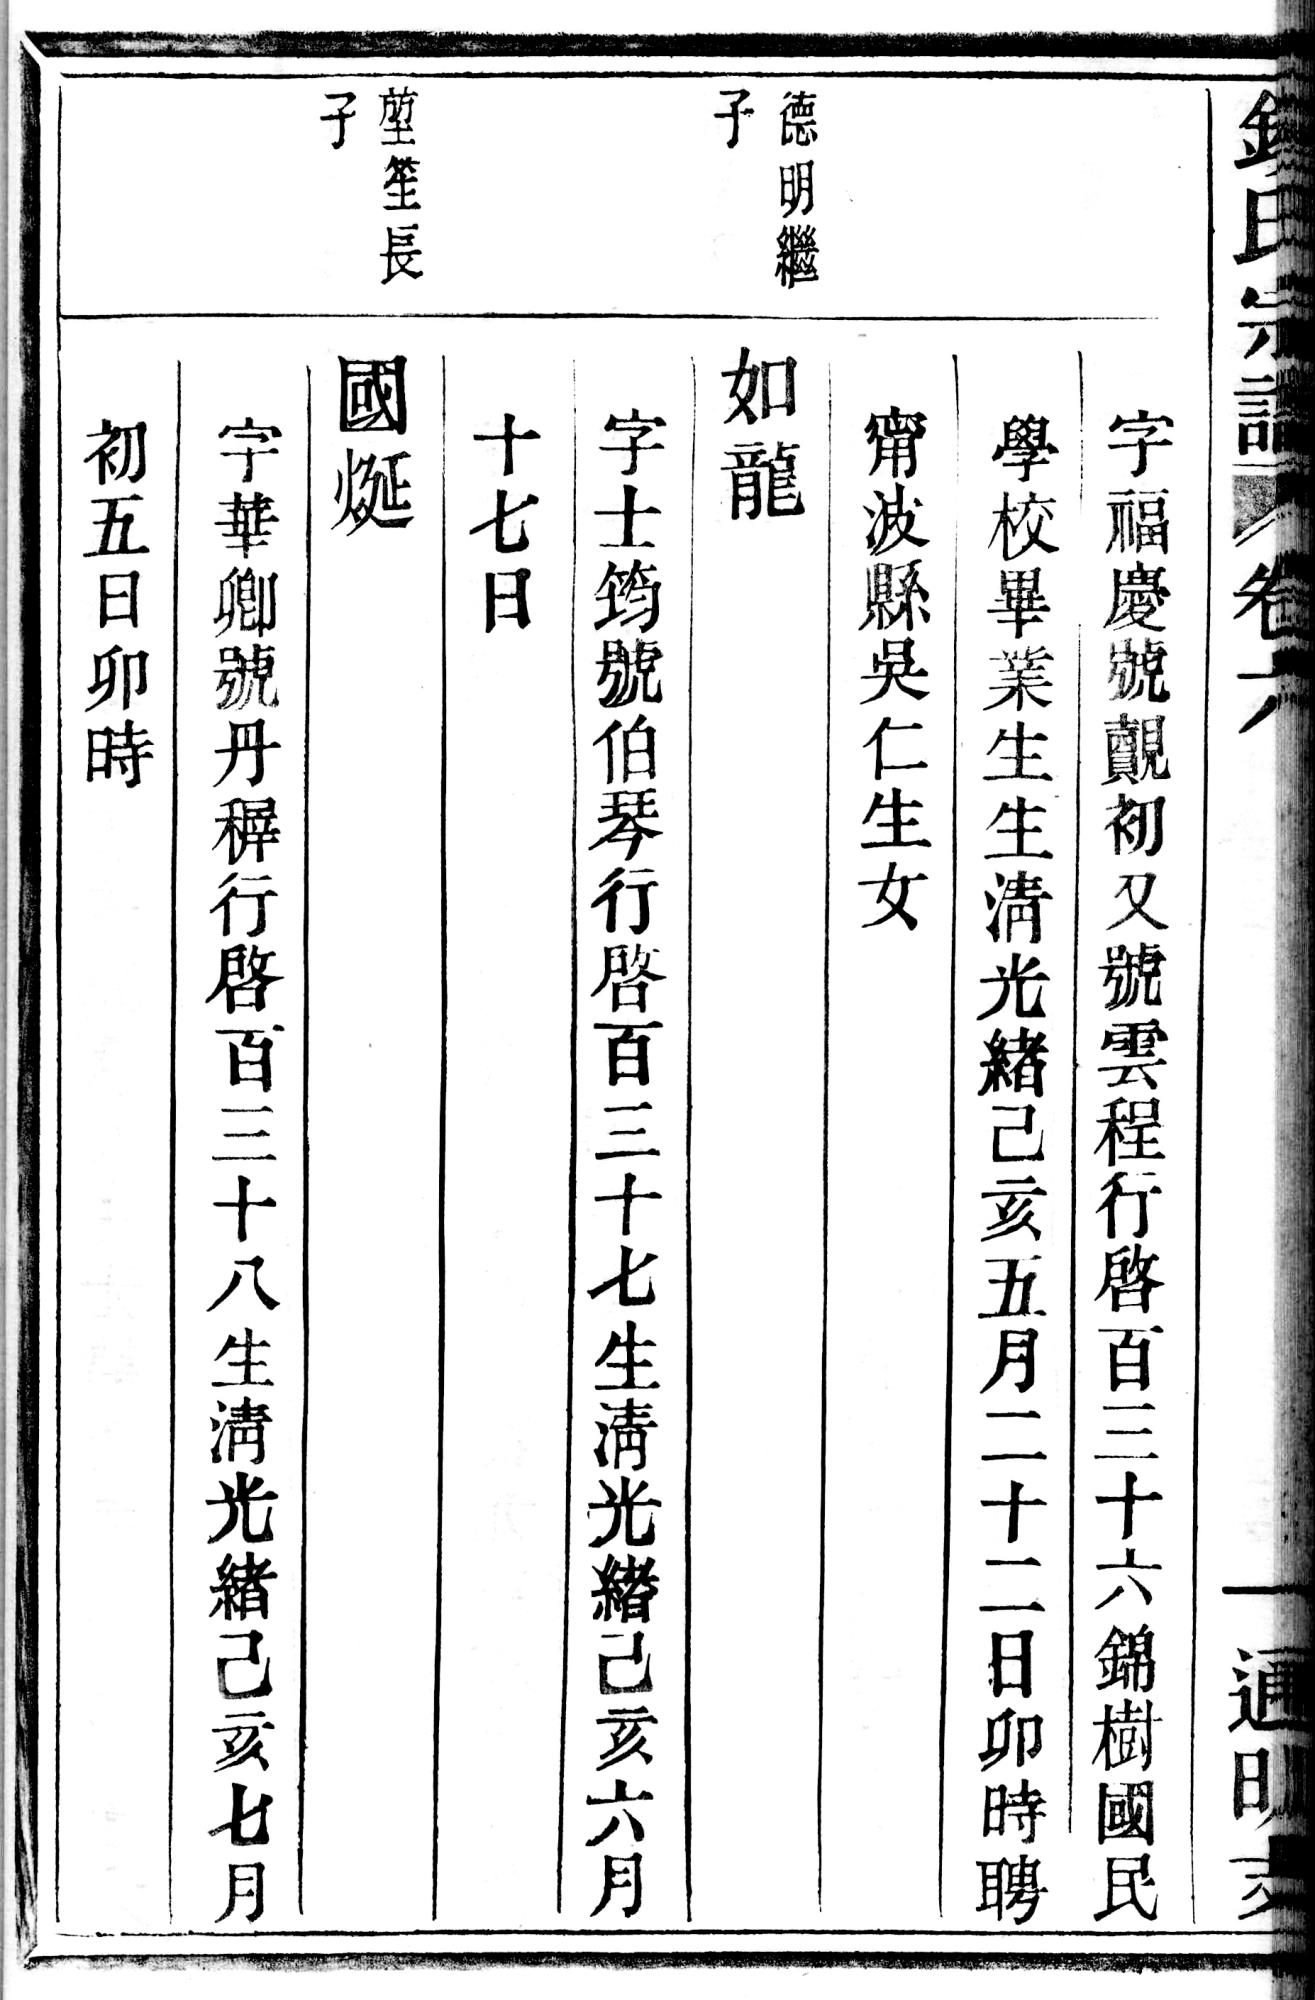 氏宗譜
卷六
一
通明
字福慶號覿初又號雲程行啓百三十六錦樹國民
學校畢業生生淸光緖己亥五月二十二日卯時聘
甯波縣吳仁生女
德明繼
子
如龍
字士筠號伯琴行啓百三十七生淸光緖己亥六月
十七日
堃笙長
子
國烻
字華卿號丹穉行啓百三十八生淸光緖己亥七月
初五日卯時